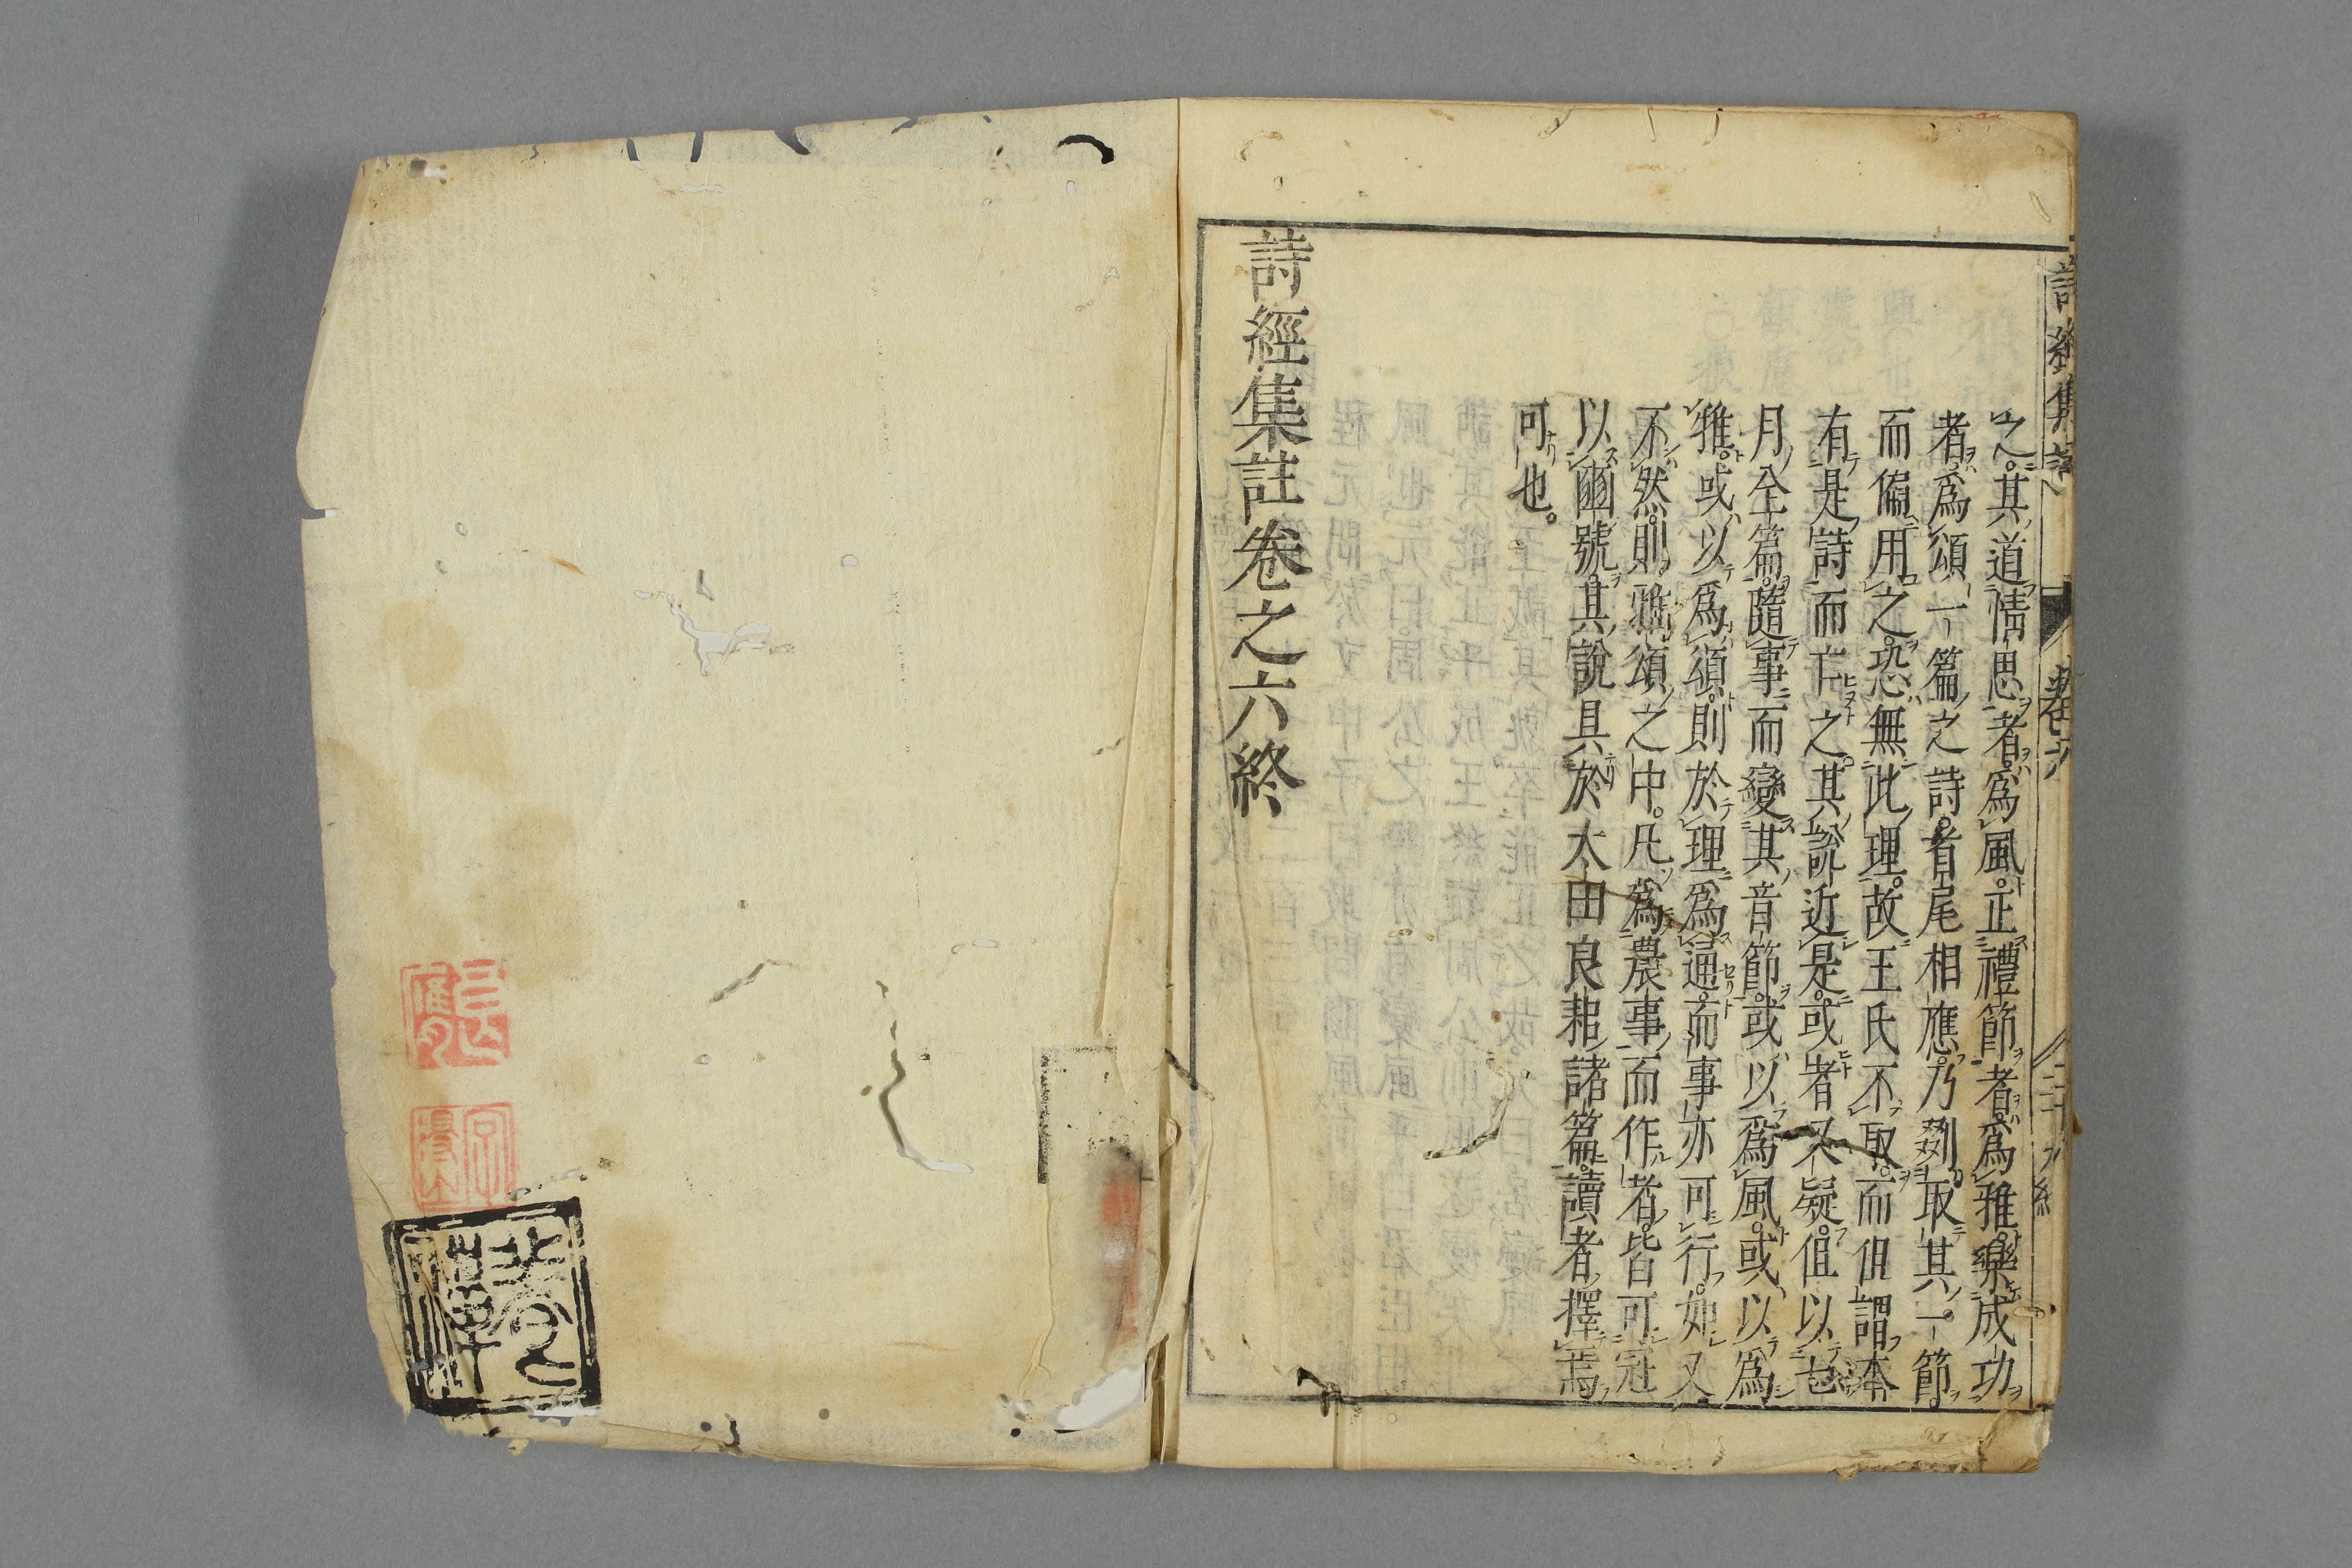 之其道情思者爲風正禮節者爲雅樂成功
者爲頌一篇之詩首尾相應乃剟取其一節
而偏用之恐無此理故王氏不取而但謂本
有是詩而亡之其說近是或者又疑但以七
月全篇隨事而變其音節或以爲風或以爲
雅或以爲頌則於理爲通而事亦可行如又
不然則雅頌之中凡爲農事而作者皆可冠
以豳號其說具於大田良耜諸篇讀者擇焉
可也
詩經集註卷之六終